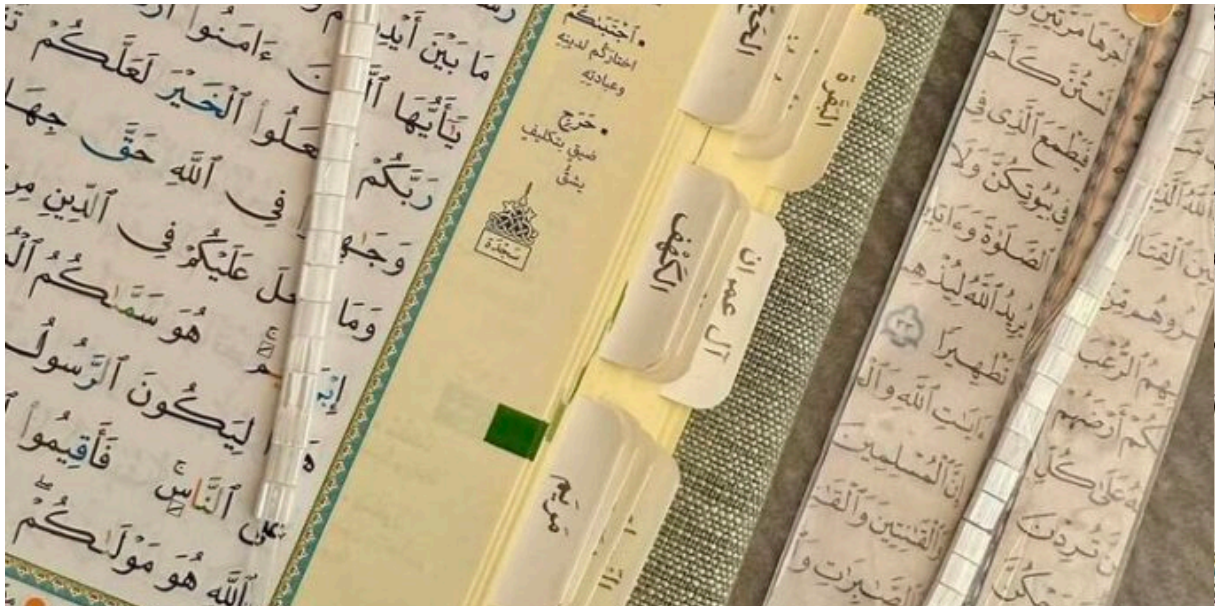 مَا بَيْنَ أَيْدِ
يَٰٓأَيُّهَا ءَامَنُوا
رَبَّكُمْ ٱلْخَيْرَ لَعَلَّكُمْ
وَجَٰهِ فِى ٱللَّهِ حَقَّ جِهَا
وَمَا عَلَيْكُمْ فِى ٱلدِّينِ مِنْ
هُوَ سَمَّىٰكُمُ
لِيَكُونَ ٱلرَّسُولُ
عَلَى ٱلنَّاسِ فَأَقِيمُوا
ٱللَّهِ هُوَ مَوْلَىٰكُمْ
• ٱجْتَبَىٰكُمْ
اختاركم لدينه
وعبادته
• حَرَجٍ
ضيق بتكليف
يشقُّ
سَجْدَة
الحَج
البَقَرَة
الكَهْف
آل عمران
مَريَم
أَجْرَهَا مَرَّتَيْنِ
لَسْتُنَّ كَأَحَ
فَيَطْمَعَ ٱلَّذِى فِى
فِى بُيُوتِكُنَّ وَلَا
ٱلصَّلَوٰةَ وَءَاتِي
يُرِيدُ ٱللَّهُ لِيُذْهِ
تَطْهِيرًا ٣٣
ءَايَٰتِ ٱللَّهِ وَٱلْ
إِنَّ ٱلْمُسْلِمِينَ
وَٱلْقَٰنِتِينَ وَٱلْقَٰنِ
وَٱلصَّٰبِرَٰتِ وَ
ٱلْقِتَالَ
بِهِمُ ٱلرُّعْبَ
أَرْضَهُمْ
عَلَىٰ كُلِّ
تُرِدْنَ